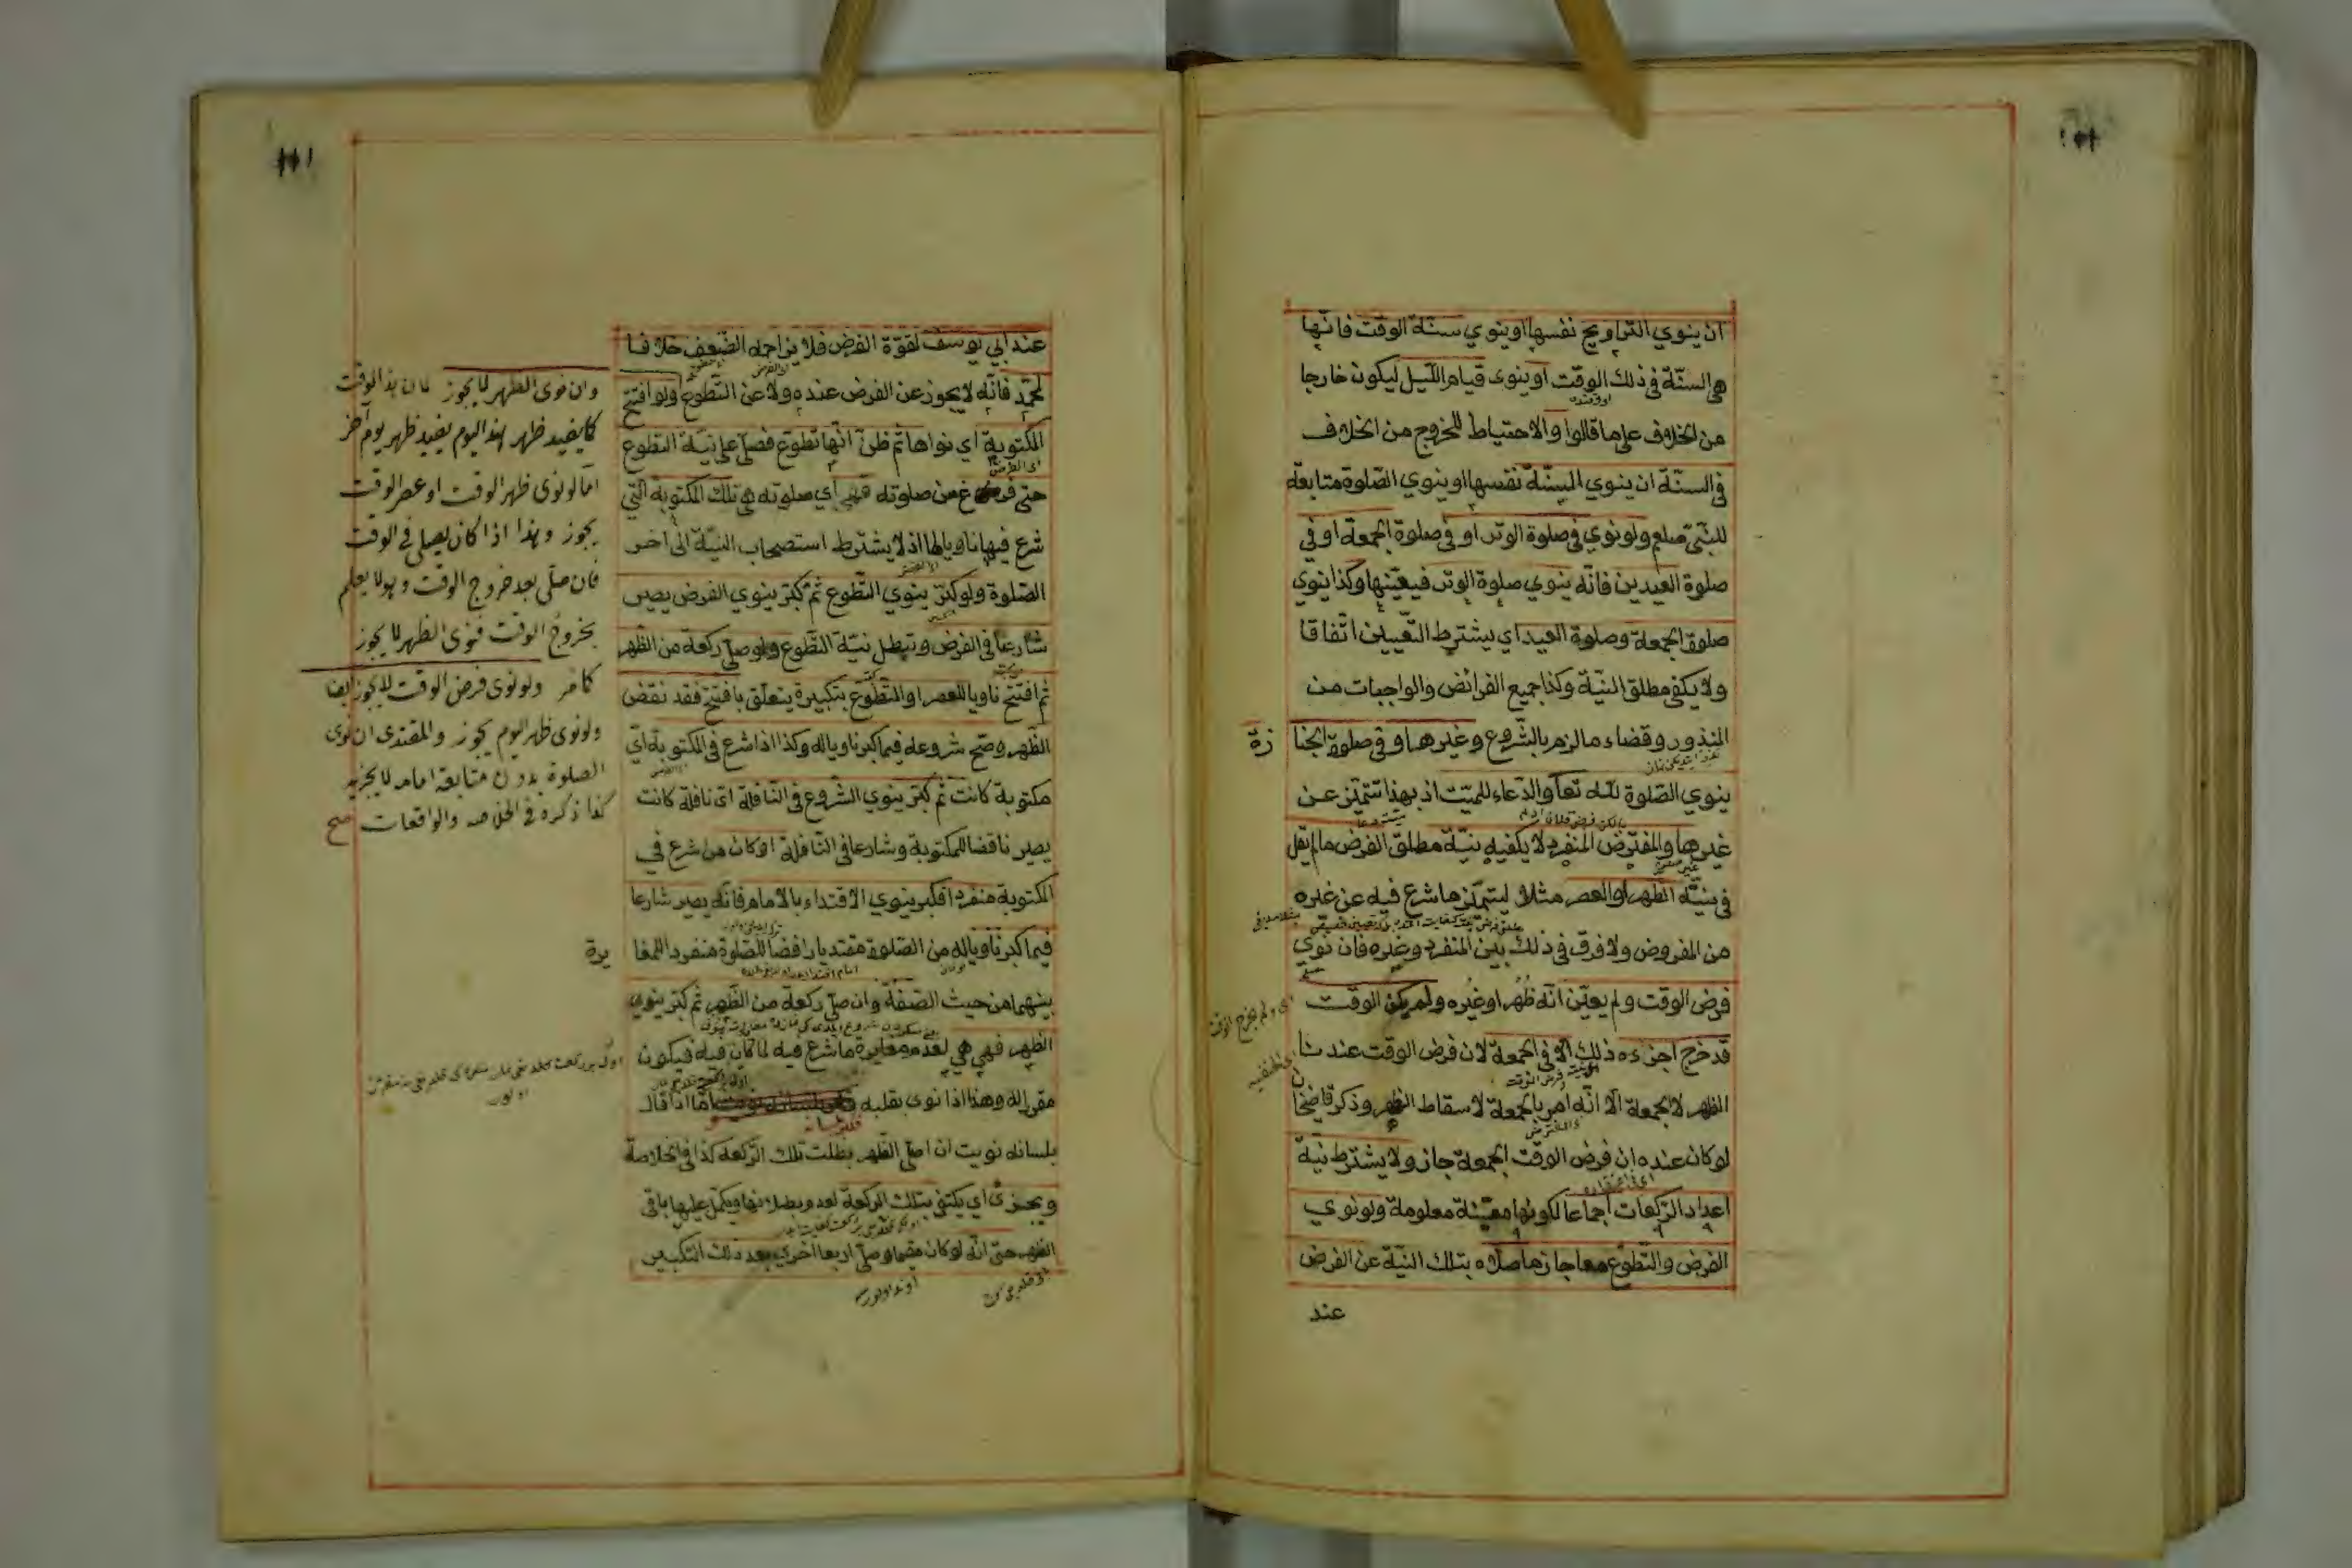 ان ينوي التراويح نفسها او ينوي سنة الوقت فانها
هي السنة في ذلك الوقت او ينوى قيام الليل ليكون خارجا
من الخلاف على ما قالوا والاحتياط للخروج من الخلاف
في السنة ان ينوي السنة نفسها او ينوي الصلوة متابعة
للنبي صلعم ولو نوي في صلوة الوتر او في صلوة الجمعة او في
صلوة العيدين فانه ينوي صلوة الوتر فيعينها وكذا ينوي
صلوة الجمعة وصلوة العيد اي يشترط التعيين اتفاقا
ولا يكفي مطلق النية وكذا جميع الفرائض والواجبات من
المنذور وقضاء ما لزم بالشروع وغيرهما وفي صلوة الجنا زة
ينوي الصلوة لله تعا والدعاء للميت اذ بهذا تتميز عن
غيرها والمفترض المنفرد لا يكفيه نية مطلق الفرض ما لم يقل
في نيته الظهر او العصر مثلا ليتميز ما شرع فيه عن غيره
من المفروض ولا فرق في ذلك بين المنفرد وغيره فان نوي
فرض الوقت ولم يعين انه ظهر او غيره ولم يكن الوقت
اى ولم يخرج الوقت
قد خرج اجزءه ذلك الا في الجمعة لان فرض الوقت عند نا
الظهر لا الجمعة الا انه امر بالجمعة لاسقاط الظهر وذكر قاضيخان
لو كان عنده ان فرض الوقت الجمعة جاز ولا يشترط نية
اعداد الركعات اجماعا لكونها معينة معلومة ولو نوي
الفرض والتطوع معا جاز ما صلاه بتلك النية عن الفرض
عند
عند ابي يوسف لقوة الفرض فلا يزاحمه الضعيف خلافا
لمحمد فانه لا يجوز عن الفرض عنده ولا عن التطوع ولو افتتح
المكتوبة اي نواها ثم ظن انها تطوع فصلى على نية التطوع
حتى فرغ من صلوته فهي اي صلوته هي تلك المكتوبة التي
شرع فيها ناويا لها اذ لا يشترط استصحاب النية الى آخر
الصلوة ولو كبر ينوي التطوع ثم كبر ينوي الفرض يصير
شارعا في الفرض وتبطل نية التطوع ولو صلى ركعة من الظهر
ثم افتتح ناويا للعصر او التطوع بتكبيرة يتعلق بافتتح فقد نقض
الظهر وصح شروعه فيما كبر ناويا له وكذا اذا شرع في المكتوبة اي
مكتوبة كانت ثم كبر ينوي الشروع في النافلة اي نافلة كانت
يصير ناقضا للمكتوبة وشارعا في النافلة او كان من شرع في
المكتوبة منفردا فكبر ينوي الاقتداء بالامام فانه يصير شارعا
فيما كبر ناويا له من الصلوة مقتديا رافضا للصلوة منفردا للمغا يرة
بينهما من حيث الصفة وان صلى ركعة من الظهر ثم كبر ينوي
الظهر فهي هي لعدم مغايرة ما شرع فيه لما كان فيه فيكون
مقرا له وهذا اذا نوى بقلبه اما اذا قال
بلسانه نويت ان اصلي الظهر بطلت تلك الركعة كذا في الخلاصة
ويجزئ اي يكتفى بتلك الركعة لعدم بطلانها ويكمل عليها باقي
الظهر حتى انه لو كان مقيما وصلى اربعا اخرى بعد ذلك التكبير
وان نوى الظهر لا يجوز لان هذا الوقت
كما يفيد ظهر هذا اليوم يفيد ظهر يوم آخر
اما لو نوى ظهر الوقت او عصر الوقت
يجوز وهذا اذا كان يصلى في الوقت
فان صلى بعد خروج الوقت وهو لا يعلم
بخروج الوقت فنوى الظهر لا يجوز
كما مر ولو نوى فرض الوقت لا يجوز ايضا
ولو نوى ظهر اليوم يجوز والمقتدى ان نوى
الصلوة بدون متابعة امامه لا يجزيه
كذا ذكره في الخلاصه والواقعات صح